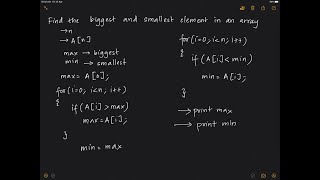 Find the biggest and smallest element in an array
→n
→ A[n]
max → biggest
min → smallest
max = A[0];
for(i=0; i<n; i++)
{ if(A[i]>max)
max=A[i];
}
min = max
for(i=0; i<n; i++)
{ if(A[i]<min)
min = A[i];
}
→ print max
→ print min